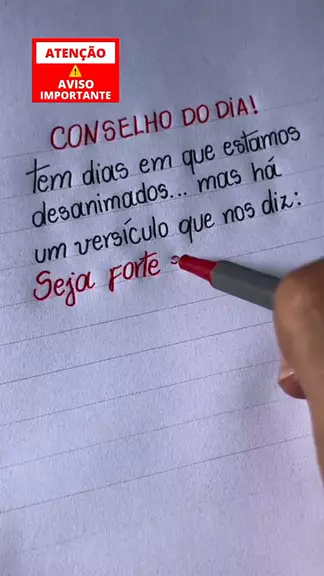 ATENÇÃO
AVISO
IMPORTANTE
CONSELHO DO DIA!
Tem dias em que estamos
desanimados... mas há
um versículo que nos diz:
Seja Forte